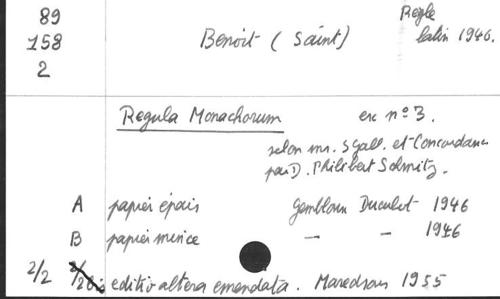 89 Règle
158 Benoit (Saint) latin 1946.
2
Regula Monachorum ex n° 3.
selon ms. S Gall. et Concordance
par D. Philibert Schmitz.
A papier épais Gembloux Duculot 1946
B papier mince — — 1946
2/2 editio altera emendata. Maredsous 1955